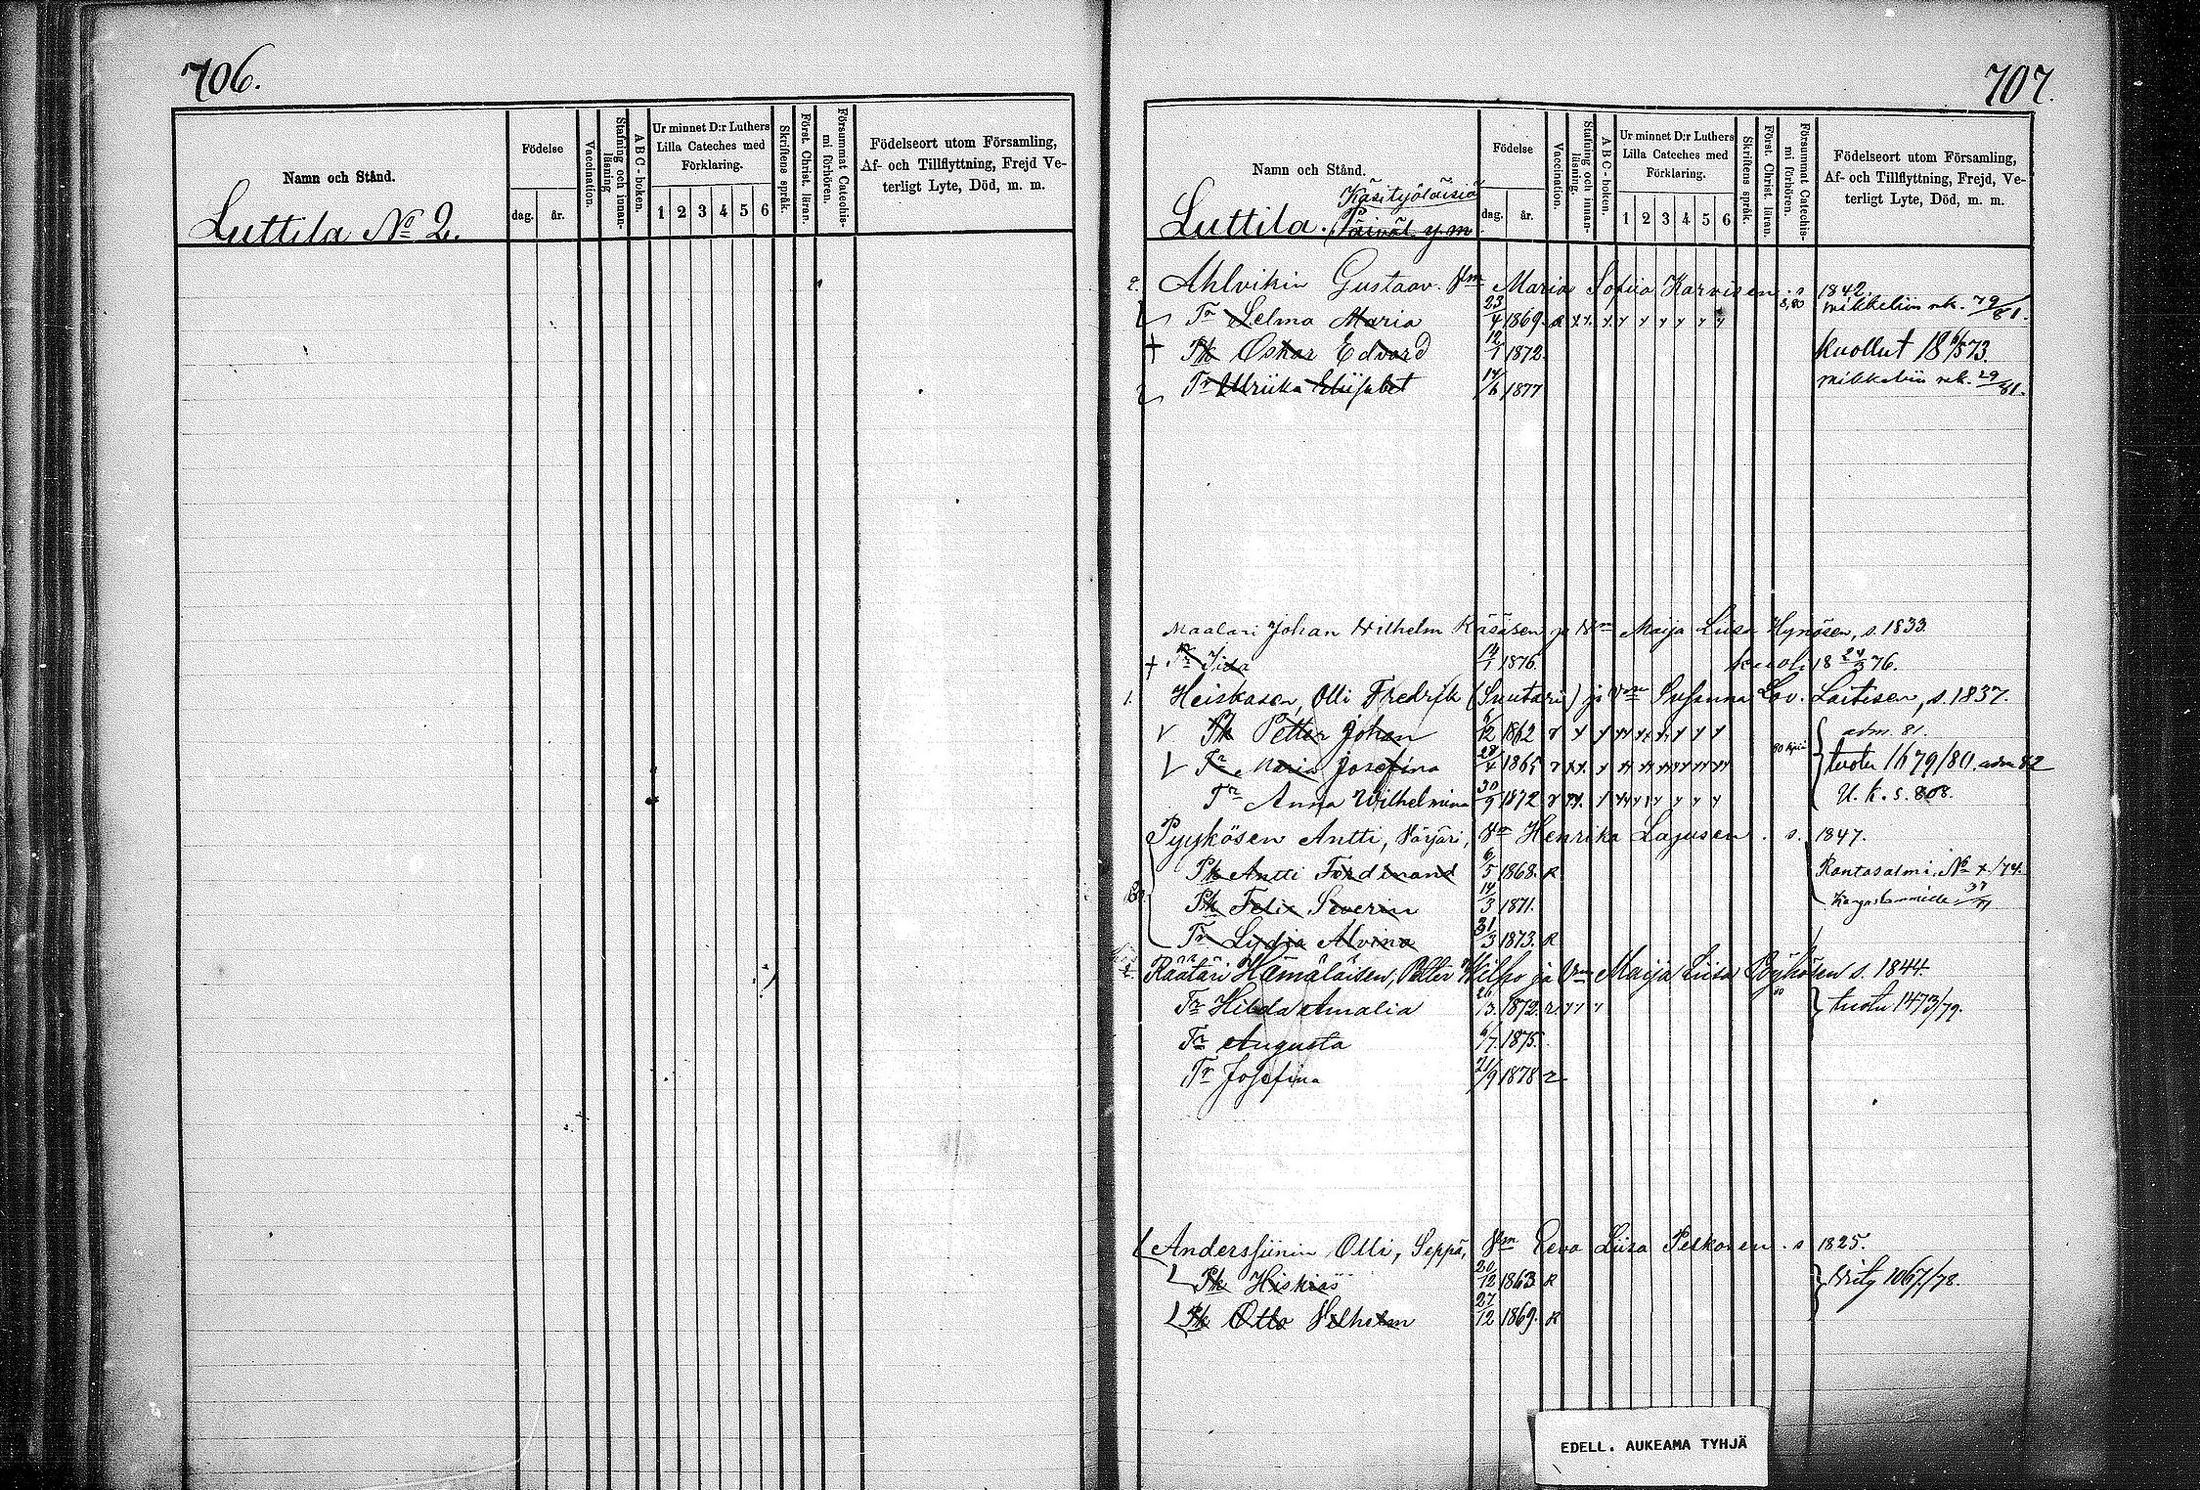 706.
Namn och Stånd.
Födelse
dag.
år.
Vaccination.
Stafning och innan-läsning
A B C - boken.
Ur minnet D:r Luthers
Lilla Cateches med
Förklaring.
1 2 3 4 5 6
Skriftens språk.
Först. Christ. läran.
Försummat Catechis-mi förhören.
Födelseort utom Församling,
Af- och Tillflyttning, Frejd Ve-
terligt Lyte, Död, m. m.
Luttila No 2.
707.
Namn och Stånd.
Födelse
dag.
år.
Vaccination.
Stafning och innan-läsning.
A B C - boken.
Ur minnet D:r Luthers
Lilla Cateches med
Förklaring.
1 2 3 4 5 6
Skriftens språk.
Först. Christ. läran.
Försummat Catechis-mi förhören.
Födelseort utom Församling,
Af- och Tillflyttning, Frejd, Ve-
terligt Lyte, Död, m. m.
Käsityöläisiä
Luttila. Päiväl. y.m
2. Ahlvikin Gustaav. Vm Maria Sofiia Karvisen. s 1842.
Tr Selma Maria 23/4 1869. mikkeliin
+ Pk Oskar Edvard 12/1 1872. kuollut 18 6/5 73.
Tr Ulriika Eliisabet 14/6 1877 mikkeliin
Maalari Johan Wilhelm Räsäsen ja Vm Maija Liisa Hynösen, s. 1833.
+ Tr Iida 14/1 1876. kuoli 18 24/3 76.
1. Heiskasen, Olli Fredrik (Suutari) ja Vm Susanna Lov. Laitisen, s. 1837.
Pk Petter Johan 6/12 1862 adm. 81.
Tr Maria Josefina 28/4 1865 tuotu 1679/80. adm 82
Tr Anna Wilhelmina 30/9 1872 U. k. s. 808.
Pyykösen Antti, Värjäri, Vm Henrika Lajusen. s. 1847.
Pk Antti Ferdinand 6/5 1868. R Rantasalmi. No
Pk Felix Severin 14/3 1871.
Tr Lydia Alvina 31/3 1873. R
Räätäri Hämäläisen, Petter Wilho ja Vm Maija Liisa Pöyhösen s. 1844.
Tr Hilda Amalia 26/3 1872. tuotu 1473/79.
Tr Augusta 6/7 1875.
Tr Josefina 21/9 1878
Anderssiinin Olli, Seppä, Vm Eeva Liisa Pelkosen. s 1825.
Pk Hiskias 20/12 1863 R 1067/78.
Pk Otto Vilhelm 27/12 1869. R
EDELL. AUKEAMA TYHJÄ